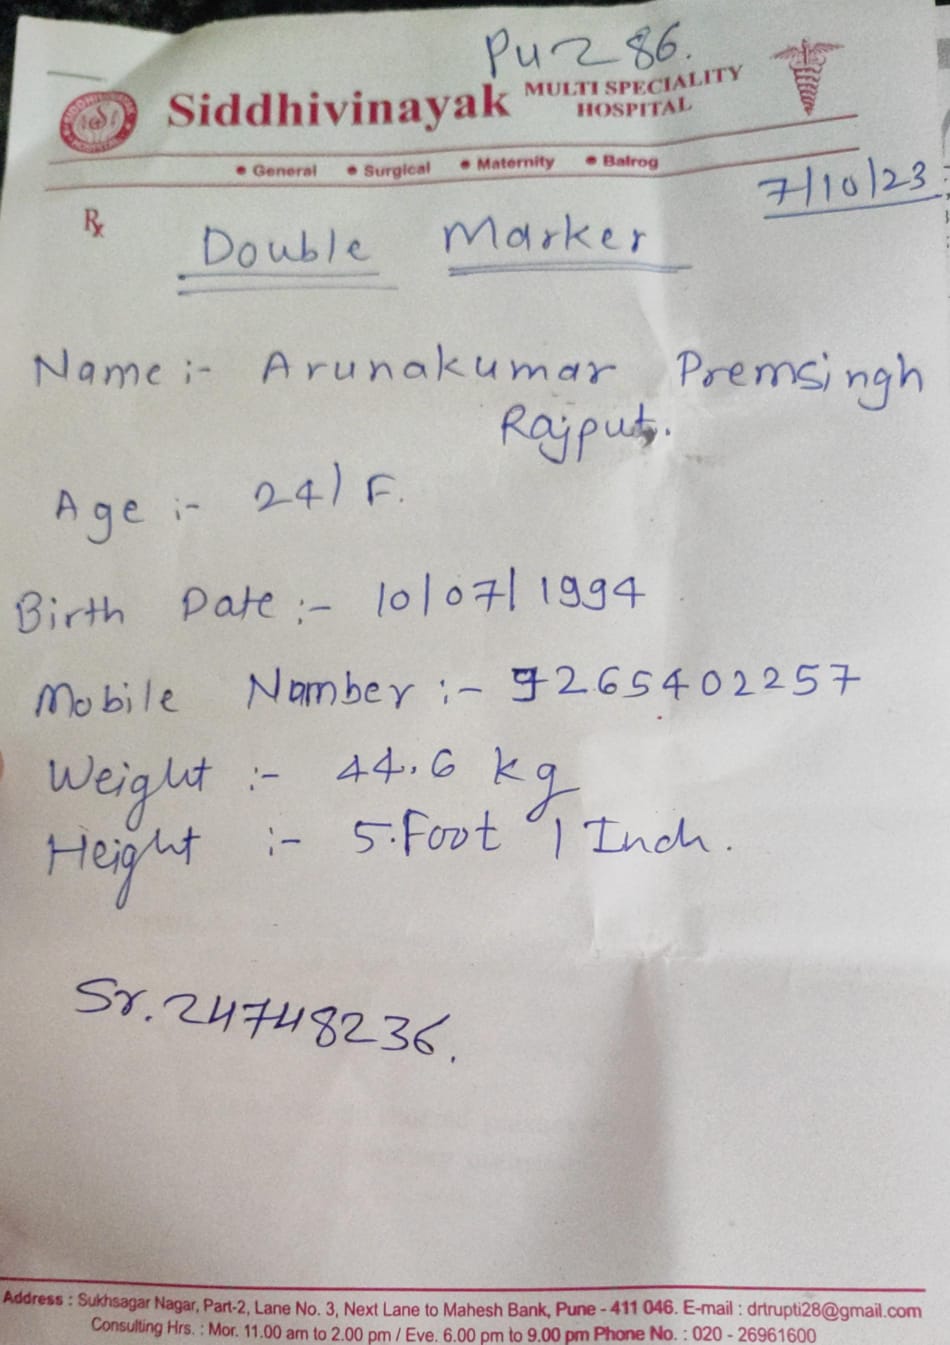 PU2 86.
Siddhivinayak MULTI SPECIALITY
HOSPITAL
• General • Surgical • Maternity • Balrog
7/10/23
Rx
Double Marker
Name :- Arunakumar Premsingh
Rajput.
Age :- 24/F.
Birth Date :- 10/07/1994
Mobile Number :- 9265402257
Weight :- 44.6 kg
Height :- 5.Foot 1 Inch.
Sr. 24748236.
Address : Sukhsagar Nagar, Part-2, Lane No. 3, Next Lane to Mahesh Bank, Pune - 411 046. E-mail : drtrupti28@gmail.com
Consulting Hrs. : Mor. 11.00 am to 2.00 pm / Eve. 6.00 pm to 9.00 pm Phone No. : 020 - 26961600